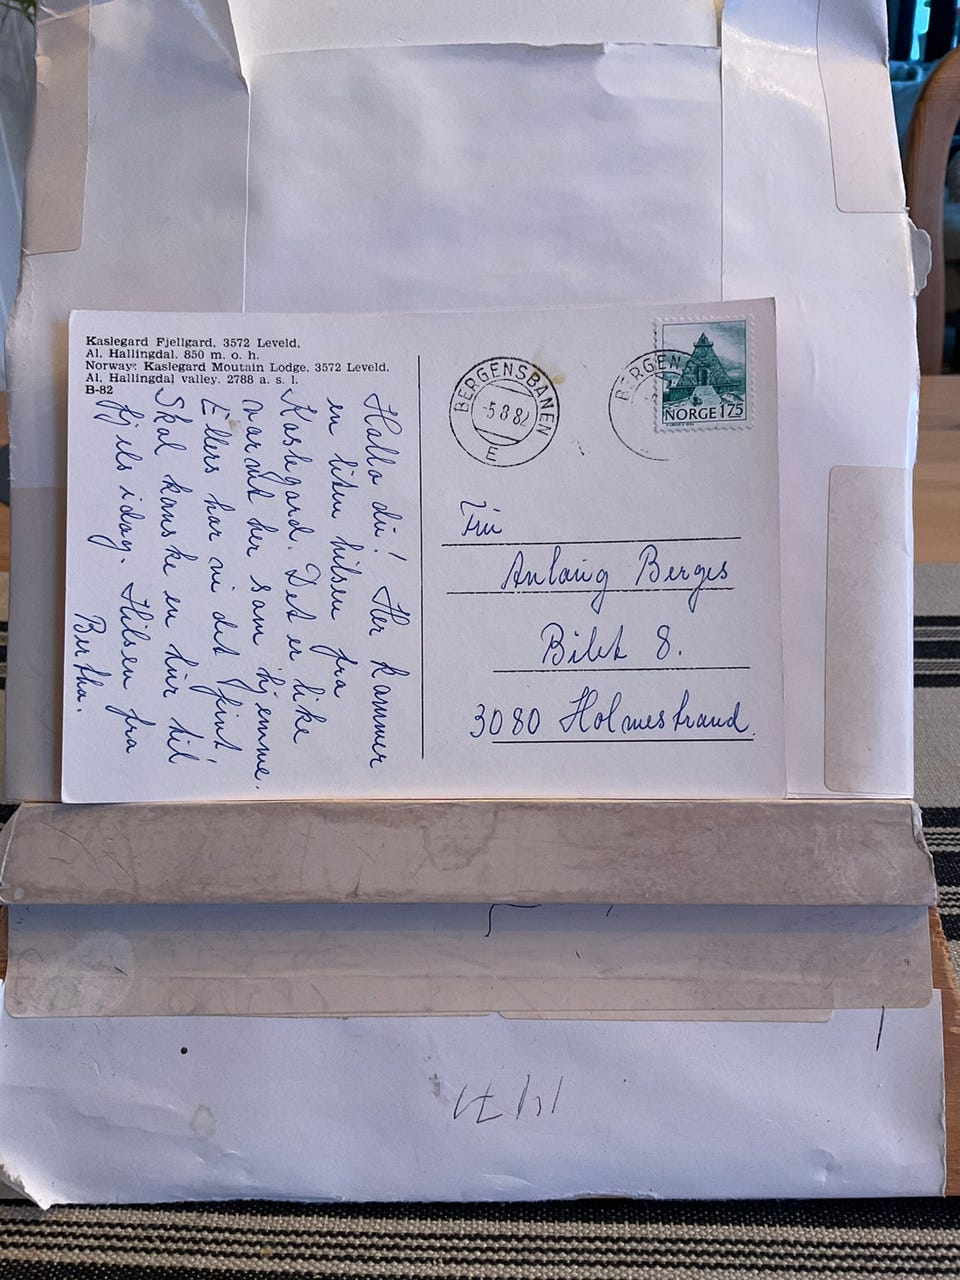 Kaslegard Fjellgard, 3572 Leveld,
Al. Hallingdal. 850 m. o. h.
Norway: Kaslegard Moutain Lodge, 3572 Leveld.
Al. Hallingdal valley. 2788 a. s. l.
B-82
Hallo du! Her kommer
en liten hilsen fra
Kaslegard. Det er like
varmt her som hjemme.
Ellers har vi det fint
Skal kanske en tur til
Gjeilo idag. Hilsen fra
Bertha.
BERGENSBANEN
-5 8 82
E
BERGENS
NORGE 175
Fru
Anlaug Berges
Bilet 8.
3080 Holmestrand.